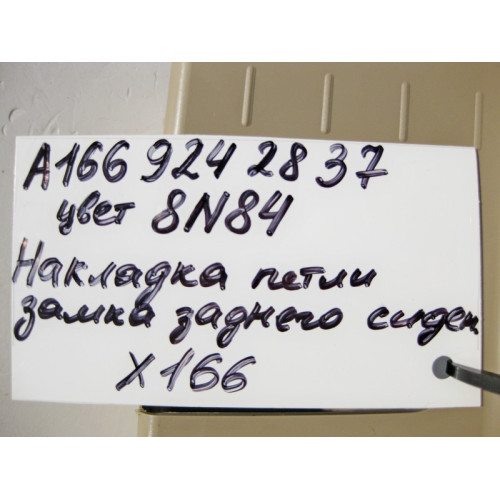 А166 924 28 37
цвет 8N84
Накладка петли
замка заднего сиден
X166